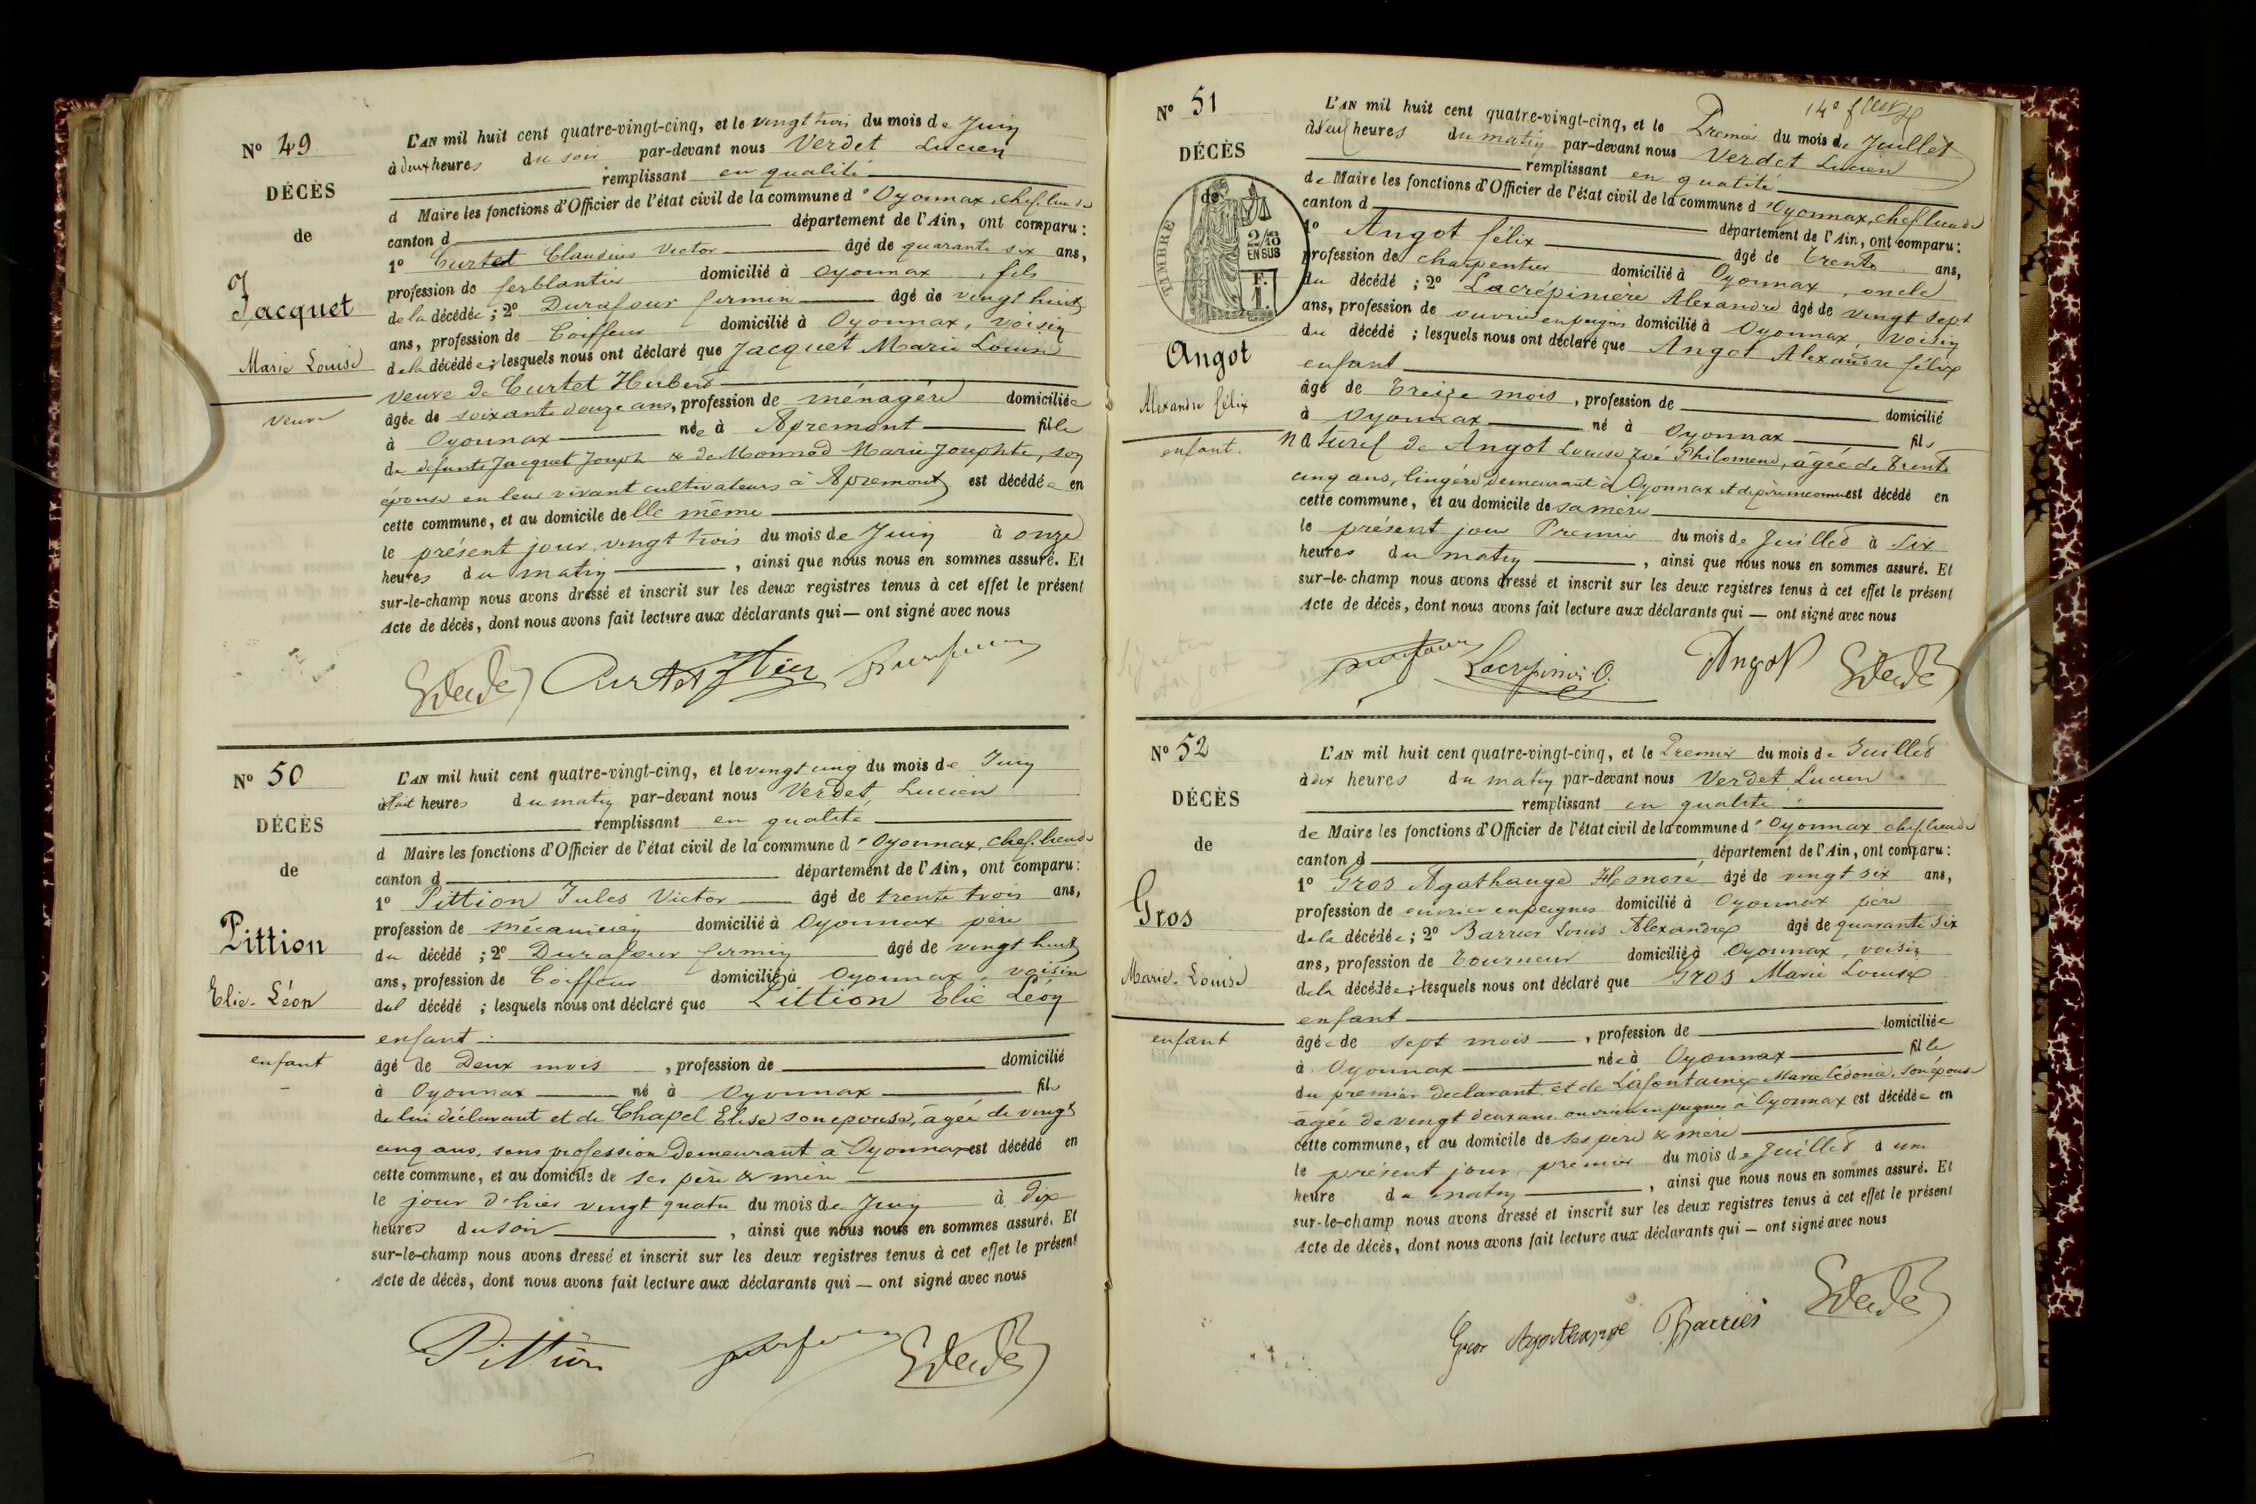 N° 49
DÉCÈS
de
Jacquet
Marie Louise
veuve
L'AN mil huit cent quatre-vingt-cinq, et le vingt trois du mois de Juin
à deux heures du soir par-devant nous Verdet Lucien
remplissant en qualité
d Maire les fonctions d'Officier de l'état civil de la commune d'Oyonnax, chef lieu de
canton d département de l'Ain, ont comparu :
1° Curtet Claudius Victor âgé de quarante six ans,
profession de ferblantier domicilié à Oyonnax, fils
de la décédée ; 2° Durafour firmin âgé de vingt huit
ans, profession de Coiffeur domicilié à Oyonnax, voisin
de la décédée ; lesquels nous ont déclaré que Jacquet Marie Louise
veuve de Curtet Hubert
âgée de soixante douze ans, profession de ménagère domiciliée
à Oyonnax née à Apremont fille
de défunts Jacquet Joseph & de Monnod Marie Josephte, son
épouse en leur vivant cultivateurs à Apremont est décédée en
cette commune, et au domicile de elle même
le présent jour, vingt trois du mois de Juin à onze
heures du matin, ainsi que nous nous en sommes assuré. Et
sur-le-champ nous avons dressé et inscrit sur les deux registres tenus à cet effet le présent
Acte de décès, dont nous avons fait lecture aux déclarants qui — ont signé avec nous
N° 50
DÉCÈS
de
Pittion
Elie-Léon
enfant
L'AN mil huit cent quatre-vingt-cinq, et le vingt cinq du mois de Juin
à huit heures du matin par-devant nous Verdet Lucien
remplissant en qualité
d Maire les fonctions d'Officier de l'état civil de la commune d'Oyonnax, chef lieu de
canton d département de l'Ain, ont comparu :
1° Pittion Jules Victor âgé de trente trois ans,
profession de mécanicien domicilié à Oyonnax père
du décédé ; 2° Durafour firmin âgé de vingt huit
ans, profession de Coiffeur domicilié à Oyonnax, voisin
du décédé ; lesquels nous ont déclaré que Pittion Elie Léon
enfant
âgé de Deux mois, profession de domicilié
à Oyonnax né à Oyonnax fils
de lui déclarant et de Chapel Elise son épouse, âgée de vingt
cinq ans, sans profession demeurant à Oyonnax est décédé en
cette commune, et au domicile de ses père & mère
le jour d'hier vingt quatre du mois de Juin à dix
heures du soir, ainsi que nous nous en sommes assuré. Et
sur-le-champ nous avons dressé et inscrit sur les deux registres tenus à cet effet le présent
Acte de décès, dont nous avons fait lecture aux déclarants qui — ont signé avec nous
Pittion
N° 51
DÉCÈS
de
TIMBRE
2/10
EN SUS
Angot
Alexandre félix
enfant.
L'AN mil huit cent quatre-vingt-cinq, et le Premier du mois de Juillet
à Neuf heures du matin par-devant nous Verdet Lucien
remplissant en qualité
de Maire les fonctions d'Officier de l'état civil de la commune d'Oyonnax, chef lieu de
canton d département de l'Ain, ont comparu :
1° Angot félix âgé de trente ans,
profession de charpentier domicilié à Oyonnax, oncle
du décédé ; 2° Lacrépinière Alexandre âgé de vingt sept
ans, profession de ouvrier en peignes domicilié à Oyonnax, voisin
du décédé ; lesquels nous ont déclaré que Angot Alexandre félix
enfant
âgé de treize mois, profession de domicilié
à Oyonnax né à Oyonnax fils
naturel de Angot Louise Zoé Philomène, âgée de trente
cinq ans, lingère demeurant à Oyonnax et de père inconnu est décédé en
cette commune, et au domicile de sa mère
le présent jour Premier du mois de Juillet à six
heures du matin, ainsi que nous nous en sommes assuré. Et
sur-le-champ nous avons dressé et inscrit sur les deux registres tenus à cet effet le présent
Acte de décès, dont nous avons fait lecture aux déclarants qui — ont signé avec nous
Angot
N° 52
DÉCÈS
de
Gros
Marie-Louise
enfant
L'AN mil huit cent quatre-vingt-cinq, et le Premier du mois de Juillet
à dix heures du matin par-devant nous Verdet Lucien
remplissant en qualité
de Maire les fonctions d'Officier de l'état civil de la commune d'Oyonnax chef lieu de
canton d département de l'Ain, ont comparu :
1° Gros Agathange Honoré âgé de vingt six ans,
profession de ouvrier en peignes domicilié à Oyonnax père
de la décédée ; 2° Barrier Louis Alexandre âgé de quarante six
ans, profession de tourneur domicilié à Oyonnax, voisin
de la décédée ; lesquels nous ont déclaré que Gros Marie Louise
enfant
âgée de sept mois, profession de domiciliée
à Oyonnax née à Oyonnax fille
du premier déclarant et de Lafontaine Marie Cédonie, son épouse
âgée de vingt deux ans ouvrière en peignes à Oyonnax est décédée en
cette commune, et au domicile de ses père & mère
le présent jour, premier du mois de Juillet à une
heure du matin, ainsi que nous nous en sommes assuré. Et
sur-le-champ nous avons dressé et inscrit sur les deux registres tenus à cet effet le présent
Acte de décès, dont nous avons fait lecture aux déclarants qui — ont signé avec nous
Gros Agathange Barrier